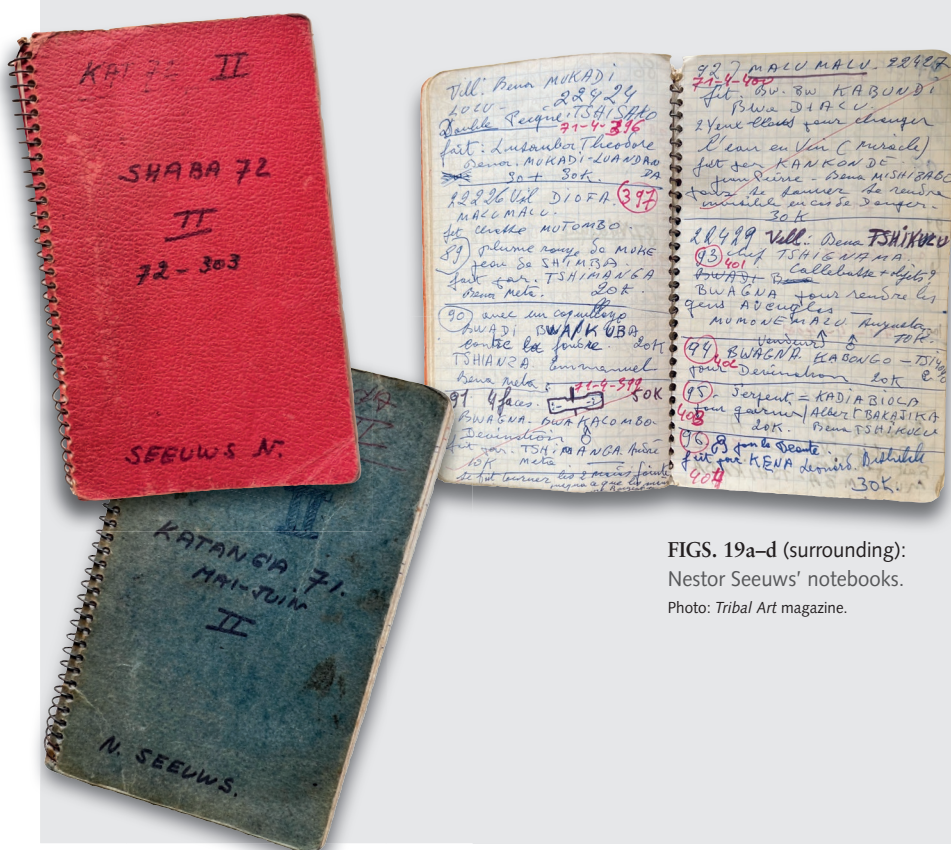 KAT 72 II
SHABA 72
II
72-303
SEEUWS N.
KATANGA 71.
MAI-JUIN
II
N. SEEUWS.
Vill: Bena MUKADI
LULU - 22424
Double Peigne: TSHISAKO
71-4-396
fait: Lusamba Theodore
Bena: MUKADI-LUANDA
30 + 30K.
22226 Vil DIOFA. 397
MALUMALU.
fét MUTOMBO
89 plume rouge de MOKE
peau de SHIMBA.
fait par. TSHIMANGA
Bena Meta. 20K
90 avec un coquillage
BWADI BWA KUBA
contre la foudre. 20K
TSHIANZA Emmanuel
Bena Meta
71-4-399
91 4 faces. 50K
BWAGNA. BWA KALOMBO.
Devination
fait par. TSHIMANGA
10K Meta
92 MALU MALU. 22427
71-4-400
fit. BW. BW KABUNDI
BWA DIALU.
2 Yeux pour changer
l'eau en Vin (miracle)
fait par KANKONDE
Jean Pierre - Bena MISHIBABO
pour se sauver se rendre
invisible en cas de Danger.
30K
22429 Vill: Bena TSHIKULU
93 401 chef TSHIGNAMA.
Callebasse + objets
BWAGNA pour rendre les
gens Aveugles
MUMONEMALU Augustin
10K.
Vendeur
94 402 BWAGNA. KABONGO
pour Devination 20K
95. Serpent = KADIABIOLA
403 pour guerrir / Albert BAKAJIKA
20K. Bena TSHIKULU
96 pour la Beauté.
fait par KENA Leonard.
404 30K.
FIGS. 19a–d (surrounding):
Nestor Seeuws' notebooks.
Photo: Tribal Art magazine.